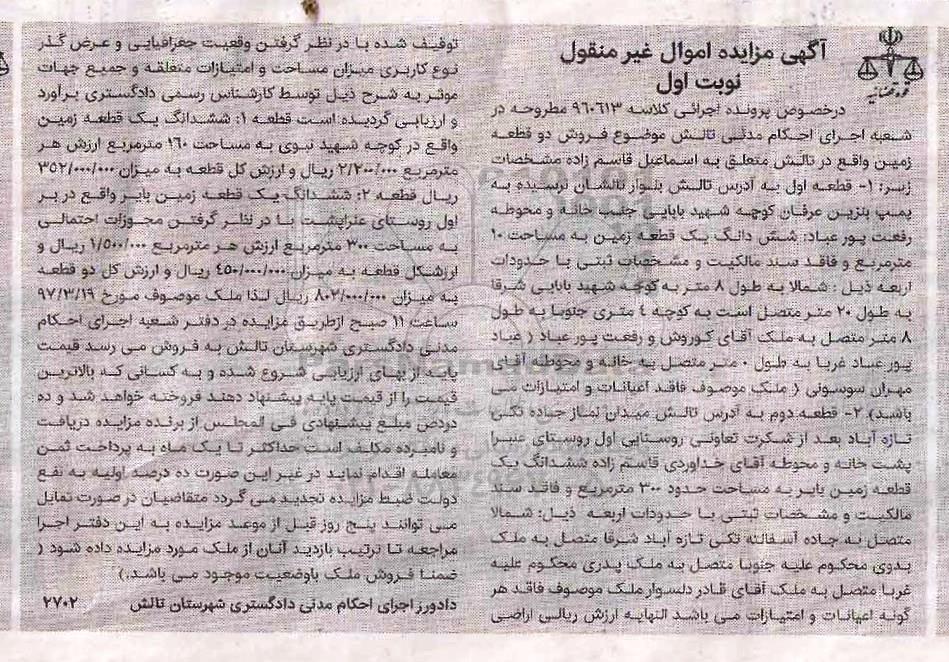 آگهی مزایده اموال غیر منقول
نوبت اول
درخصوص پرونده اجرائی کلاسه ۹۶۰۶۱۳ مطروحه در
شعبه اجرای احکام مدنی تالش موضوع فروش دو قطعه
زمین واقع در تالش متعلق به اسماعیل قاسم زاده مشخصات
زیر: ۱- قطعه اول به آدرس تالش بلوار تالشان نرسیده به
پمپ بنزین عرفان کوچه شهید بابایی جلب خانه و محوطه
رفعت پور عباد: شش دانگ یک قطعه زمین به مساحت ۱۰
مترمربع و فاقد سند مالکیت و مشخصات ثبتی با حدودات
اربعه ذیل : شمالا به طول ۸ متر به کوچه شهید بابایی شرقا
به طول ۲۰ متر متصل است به کوچه ٤ متری جنوبا به طول
۸ متر متصل به ملک آقای کوروش و رفعت پور عباد ( عباد
پور عباد غربا به طول ۰ متر متصل به خانه و محوطه آقای
مهران سوسونی ( ملک موصوف فاقد اعیانات و امتیازات می
باشد). ۲- قطعه دوم به آدرس تالش میدان نماز جاده تکی
تازه آباد بعد از شکرت تعاونی روستایی اول روستای عنبرا
پشت خانه و محوطه آقای خداوردی قاسم زاده ششدانگ یک
قطعه زمین بایر به مساحت حدود ۳۰۰ مترمربع و فاقد سند
مالکیت و مشخصات ثبتی با حدودات اربعه ذیل: شمالا
متصل به جاده آسفالته تکی تازه آباد شرقا متصل به ملک
بدوی محکوم علیه جنوبا متصل به ملک پدری محکوم علیه
غربا متصل به ملک آقای قادر دلسوار ملک موصوف فاقد هر
گونه اعیانات و امتیازات می باشد النهایه ارزش ریالی اراضی
توقیف شده با در نظر گرفتن وقعیت جغرافیایی و عرض گذر
نوع کاربری میزان مساحت و امتیازات متعلقه و جمیع جهات
موثر به شرح ذیل توسط کارشناس رسمی دادگستری براورد
و ارزیابی گردیده است قطعه ۱: ششدانگ یک قطعه زمین
واقع در کوچه شهید نبوی به مساحت ۱۶۰ مترمربع ارزش هر
مترمربع ۲/۲۰۰/۰۰۰ ریال و ارزش کل قطعه به میزان ۳۵۲/۰۰۰/۰۰۰
ریال قطعه ۲: ششدانگ یک قطعه زمین بایر واقع در بر
اول روستای عنبراپشت با در نظر گرفتن مجوزات احتمالی
به مساحت ۳۰۰ مترمربع ارزش هر مترمربع ۱/۵۰۰/۰۰۰ ریال و
ارزشکل قطعه به میزان ٤۵۰/۰۰۰/۰۰۰ ریال و ارزش کل دو قطعه
به میزان ۸۰۲/۰۰۰/۰۰۰ ریال لذا ملک موصوف مورخ ۹۷/۳/۱۹
ساعت ۱۱ صبح ازطریق مزایده در دفتر شعبه اجرای احکام
مدنی دادگستری شهرستان تالش به فروش می رسد قیمت
پایه از بهای ارزیابی شروع شده و به کسانی که بالاترین
قیمت را از قیمت پایه پیشنهاد دهند فروخته خواهد شد و ده
دردص مبلغ پیشنهادی فی المجلس از برنده مزایده دریافت
و نامبرده مکلف است حداکثر تا یک ماه به پرداخت ثمن
معامله اقدام نماید در غیر این صورت ده درصد اولیه به نفع
دولت ضبط مزایده تجدید می گردد متقاضیان در صورت تمایل
می توانند پنج روز قبل از موعد مزایده به این دفتر اجرا
مراجعه تا ترتیب بازدید آنان از ملک مورد مزایده داده شود (
ضمنا فروش ملک باوضعیت موجود می باشد.)
دادورز اجرای احکام مدنی دادگستری شهرستان تالش ۲۷۰۲